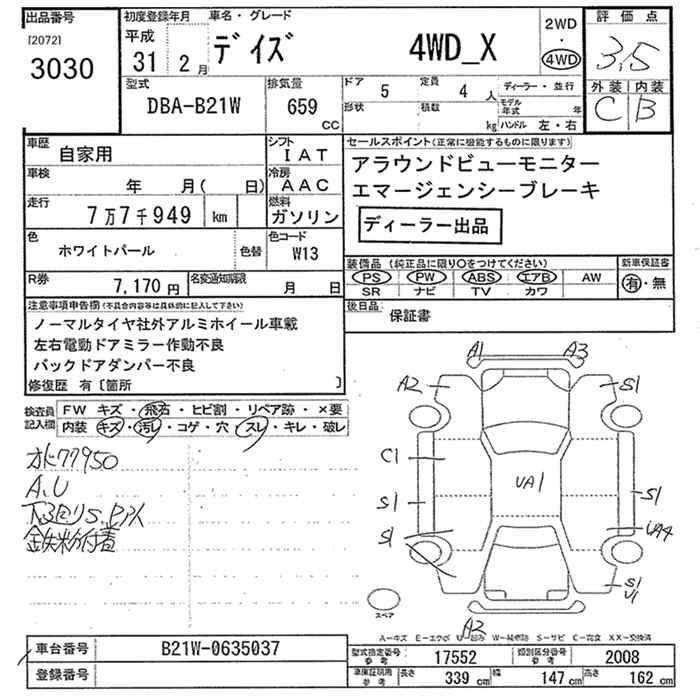 出品番号
[2072]
3030
初度登録年月
平成
31 2月
車名・グレード
デイズ 4WD_X
2WD
・
4WD
評価点
3.5
外装 内装
C B
型式
DBA-B21W
排気量
659 CC
ドア 5
形状
定員 4 人
積載 kg
ディーラー・並行
モデル年式 年
ハンドル 左・右
車歴 自家用
シフト IAT
車検 年 月( 日)
冷房 AAC
走行 7万7千949 km
燃料 ガソリン
色 ホワイトパール 色替
色コード W13
R券 7,170円
名変通知期限 月 日
セールスポイント(正常に機能するものに限ります)
アラウンドビューモニター
エマージェンシーブレーキ
ディーラー出品
装備品(純正品に限り○をつけてください)
新車保証書
PS PW ABS エアB AW
SR ナビ TV カワ
有・無
後日品 保証書
注意事項申告欄(不具合内容等は具体的に記入して下さい)
ノーマルタイヤ社外アルミホイール車載
左右電動ドアミラー作動不良
バックドアダンパー不良
修復歴 有〔箇所 〕
検査員記入欄
FW キズ・飛石・ヒビ割・リペア跡・×要
内装 キズ・汚レ・コゲ・穴・スレ・キレ・破レ
77950
A,U
下回りS
鉄粉付着
A1 A3
A2 S1
C1
UA1
S1 S1
S1 UA4
S1
U1
スペア
A2
A-キズ E-エクボ U-凹み W-補修跡 S-サビ C-腐食 XX-交換済
車台番号 B21W-0635037
登録番号
型式指定番号参考 17552
類別区分番号参考 2008
車庫証明用参考 長さ 339 cm 幅 147 cm 高さ 162 cm